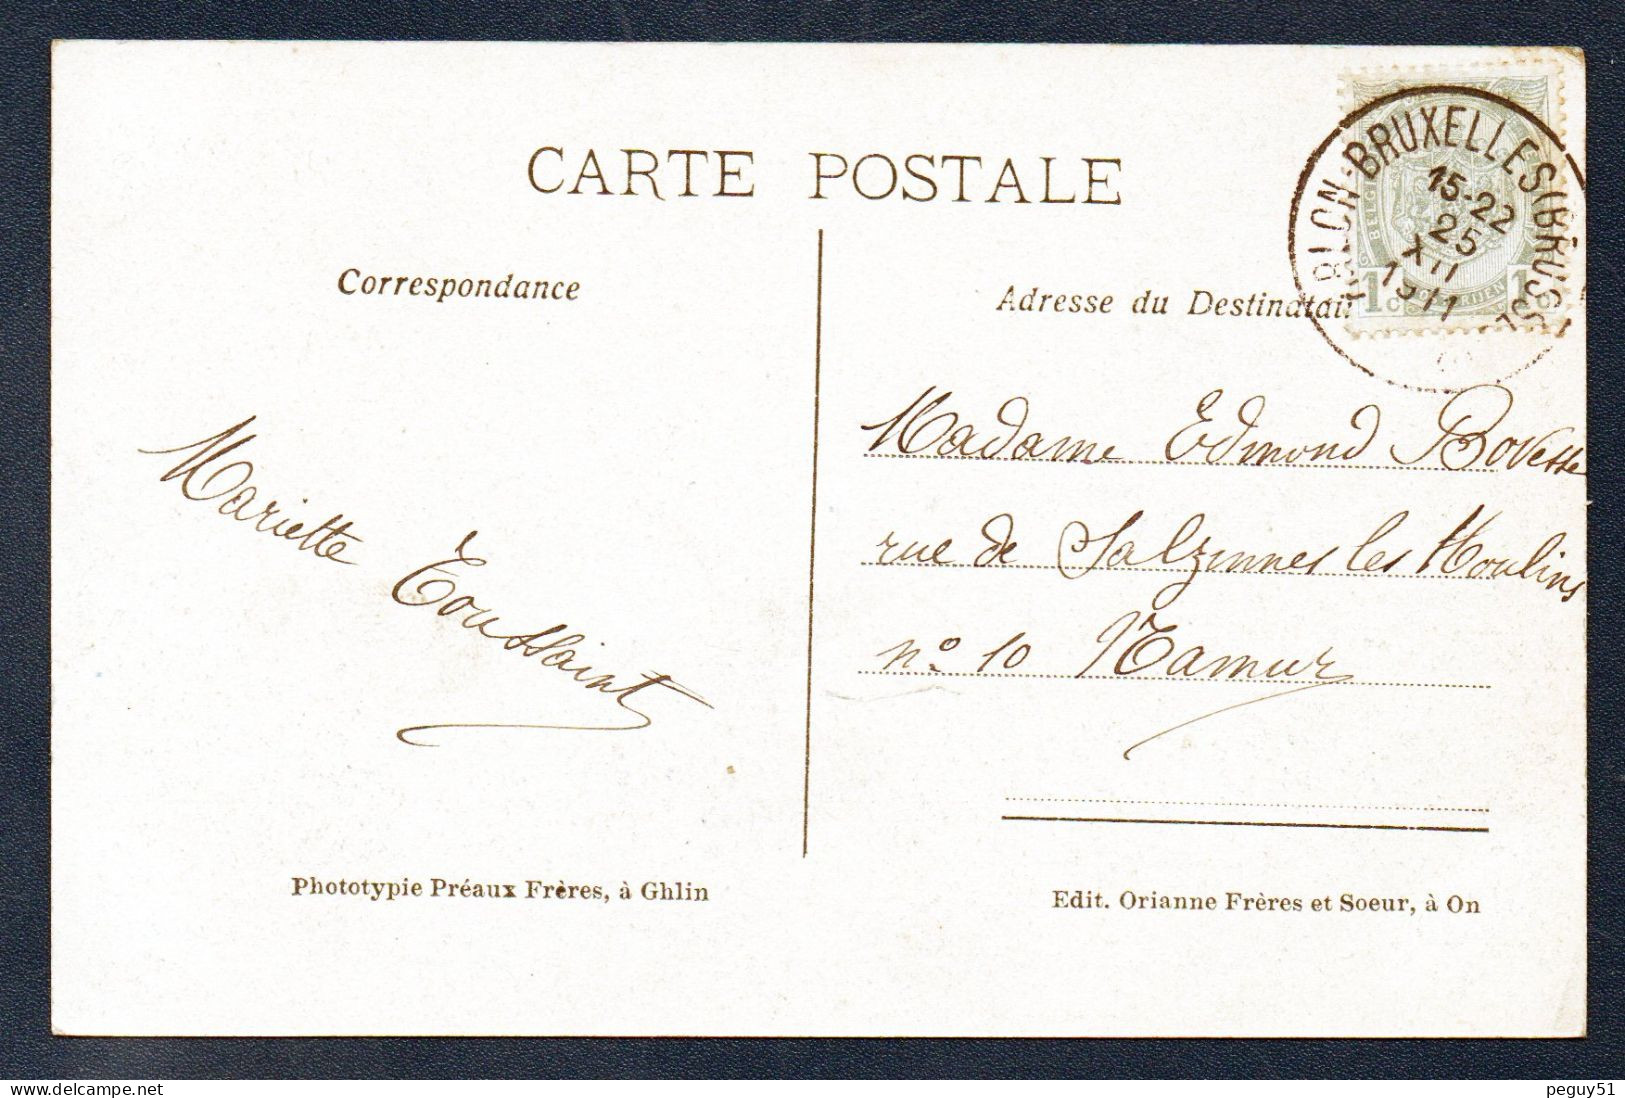 CARTE POSTALE
Correspondance
Adresse du Destinatai
ARLON-BRUXELLES(BRUSSEL
15-22
25
XII
1911
1c 1c
Mariette Toussaint
Madame Edmond Bovesse
rue de Salzinnes les Moulins
n° 10 Namur
Phototypie Préaux Frères, à Ghlin
Edit. Orianne Frères et Soeur, à On
delcampe.net
peguy51